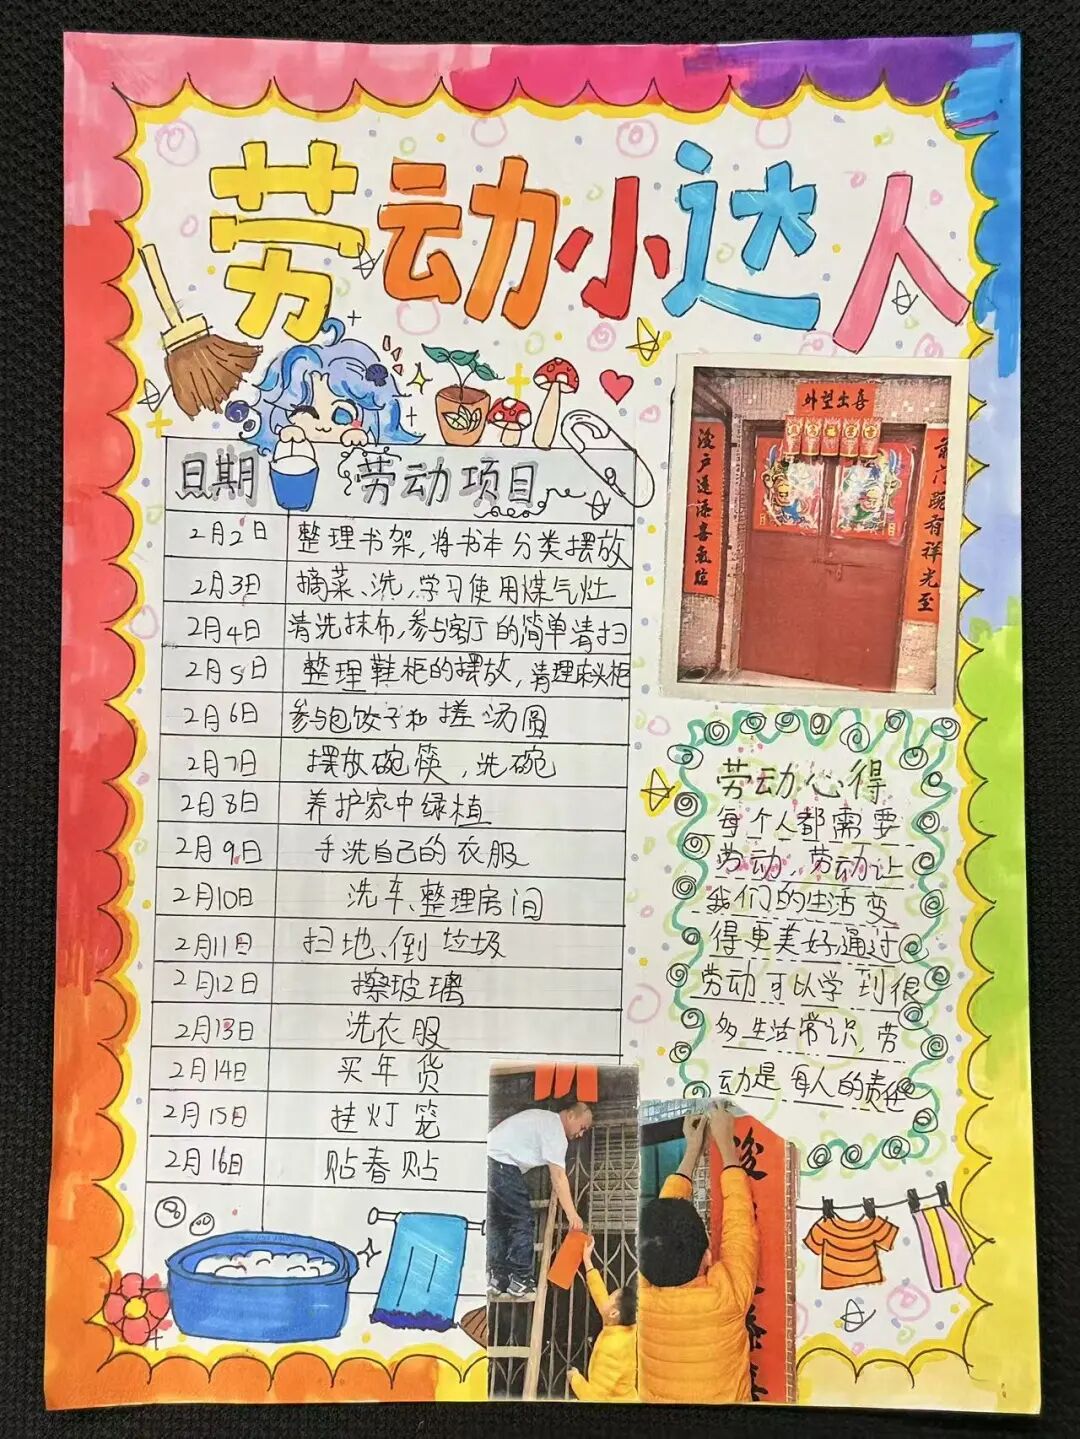 劳动小达人
日期 劳动项目
2月2日 整理书架,将书本分类摆放
2月3日 摘菜、洗,学习使用煤气灶
2月4日 清洗抹布,参与客厅的简单清扫
2月5日 整理鞋柜的摆放,清理床头柜
2月6日 参与包饺子和搓汤圆
2月7日 摆放碗筷,洗碗
2月8日 养护家中绿植
2月9日 手洗自己的衣服
2月10日 洗车、整理房间
2月11日 扫地、倒垃圾
2月12日 擦玻璃
2月13日 洗衣服
2月14日 买年货
2月15日 挂灯笼
2月16日 贴春贴
外望出喜
前门既有祥光至
劳动心得
每个人都需要
劳动,劳动让
我们的生活变
得更美好通过
劳动可以学到很
多生活常识,劳
动是每人的责任